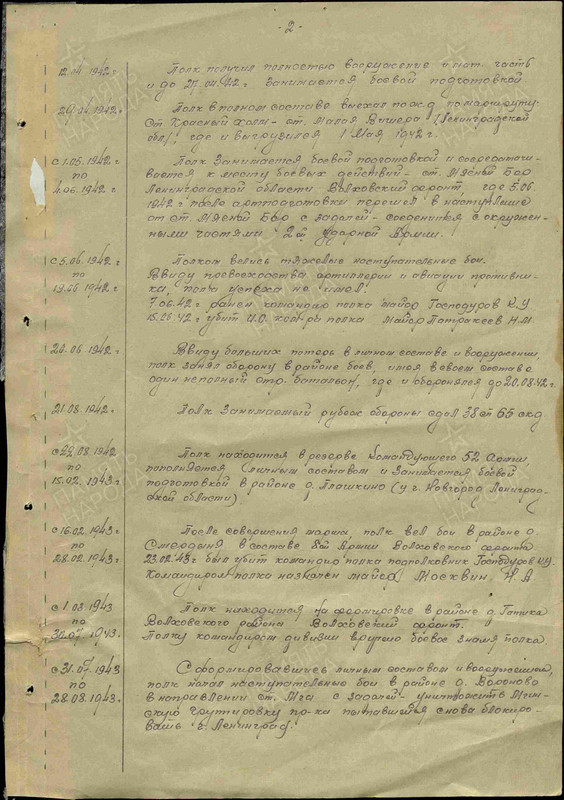 - 2 -
12.04.1942 г Полк получил полностью вооружение мат. часть
и до 27.04.42 г. Занимается боевой подготовкой
Полк в полном составе выехал по ж.д. по маршруту:
ст. Красный Холм - ст. Малая Вишера (Ленинградской
обл), где и выгрузился 1 Мая 1942 г.
с 1.05.1942 г Полк Занимается боевой подготовкой и сосредотачи-
по вается к месту боевых действий - ст. Мясной Бор
4.06.1942 г Ленинградской области Волховский фронт, где 5.06.
1942 г после артподготовки перешел в наступление
от ст. Мясной Бор с задачей - соединится с окружен-
ными частями 2ой Ударной Армии.
с 5.06.1942 г Полком велись тяжелые наступательные бои.
по Ввиду превосходства артиллерии и авиации противни-
19.06.1942 г ка, полк успеха не имел.
7.06.42 г ранен командир полка майор Господуров К.У
15.06.42 г убит И.О. ком-ра полка Майор Патракеев Н.М
20.06.1942 г Ввиду больших потерь в личном составе и вооружении,
полк занял оборону в районе боев, имея в своем составе
один неполный отд. батальон, где и оборонялся до 20.08.42 г.
21.08.1942 г Полк Занимаемый рубеж обороны сдал
с 22.08.1942 Полк находится в резерве Командующего 52 Армии
по пополняется личным составом и Занимается боевой
15.02.1943 г подготовкой в районе д. Плашкино (у г. Новгород Ленинград-
ской области)
с 16.02.1943 г После совершения марша, полк вел бои в районе д.
по Смердыня в составе 8ой Армии Волховского фронта
28.02.1943 г 23.02.43 г был убит командир полка подполковник Господуров К.У.
Командиром полка назначен майор Москвин Н.А
с 1.03.1943 Полк находится на формировке в районе д. Гатика
по Волховского района Волховский фронт.
30.07.1943. Полку командиром дивизии вручено боевое знамя полка
с 31.07.1943 Сформировавшись личным составом и вооружением,
по полк начал наступательные бои в районе д. Вороново
28.08.1943. в направлении ст. Мга с задачей - уничтожить Мгин-
скую группировку пр-ка пытавшийся снова блокиро-
вать г. Ленинград.